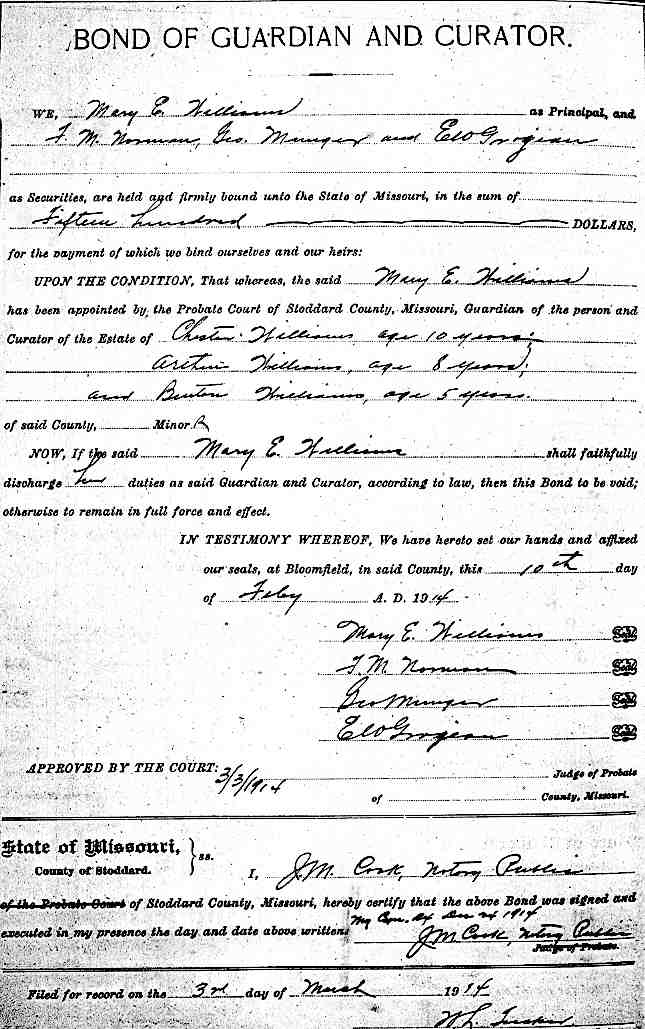 BOND OF GUARDIAN AND CURATOR.
WE, Mary E. Williams as Principal, and
F. M. Norman, Geo. Munger and Grojean
as Securities, are held and firmly bound unto the State of Missouri, in the sum of
Fifteen hundred DOLLARS,
for the payment of which we bind ourselves and our heirs:
UPON THE CONDITION, That whereas, the said Mary E. Williams
has been appointed by the Probate Court of Stoddard County, Missouri, Guardian of the person and
Curator of the Estate of Chester Williams age 10 years;
Arthur Williams, age 8 years;
and Burton Williams, age 5 years.
of said County, Minor s
NOW, If the said Mary E. Williams shall faithfully
discharge her duties as said Guardian and Curator, according to law, then this Bond to be void;
otherwise to remain in full force and effect.
IN TESTIMONY WHEREOF, We have hereto set our hands and affixed
our seals, at Bloomfield, in said County, this 10th day
of Feby A. D. 1914.
Mary E. Williams Seal
F. M. Norman Seal
Geo Munger Seal
Grojean Seal
APPROVED BY THE COURT: 3/3/1914 Judge of Probate
of County, Missouri.
State of Missouri,
County of Stoddard. } ss.
I, J.M. Cook, Notary Public
of the Probate Court of Stoddard County, Missouri, hereby certify that the above Bond was signed and
My Com. Ex Dec 24 1914
executed in my presence the day and date above written: J M Cook, Notary Public
Judge of Probate.
Filed for record on the 3rd day of March 1914
W L